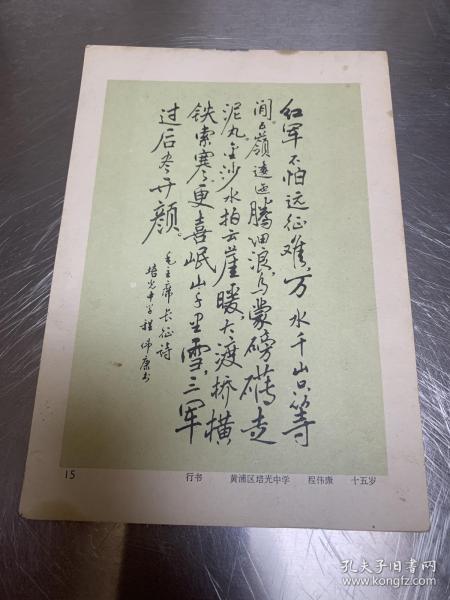 红军不怕远征难,万水千山只等
闲。五岭逶迤腾细浪,乌蒙磅礴走
泥丸。金沙水拍云崖暖,大渡桥横
铁索寒。更喜岷山千里雪,三军
过后尽开颜。
毛主席长征诗
培光中学程伟康书
15
行书 黄浦区培光中学 程伟康 十五岁
孔夫子旧书网
www.kongfz.com